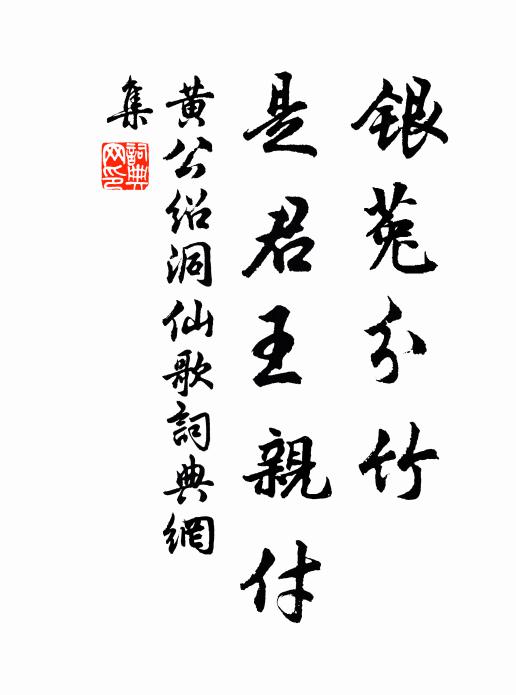 銀菟分竹
是君王親付
黃公紹洞仙歌詞典網
集
詞典
网印